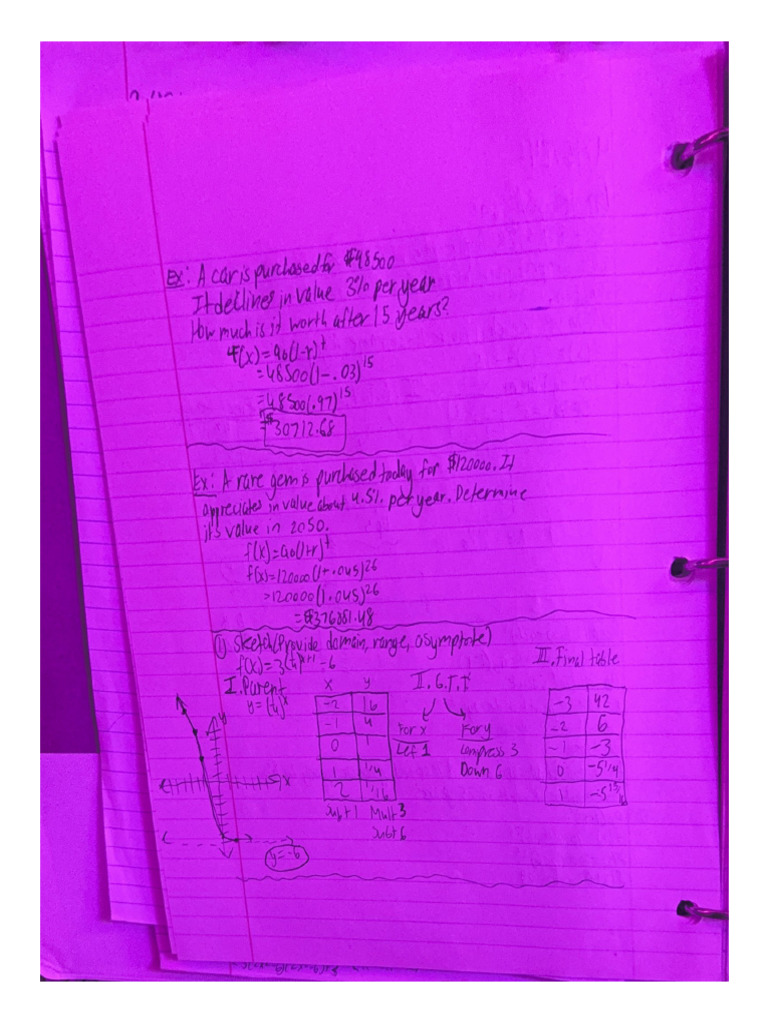 Ex: A car is purchased for $48500
It declines in value 3% per year
How much is it worth after 15 years?
f(x)=a0(1-r)^t
=48500(1-.03)^15
=48500(.97)^15
=30712.68
Ex: A rare gem is purchased today for $120000. It
appreciates in value about 4.5% per year. Determine
it's value in 2050.
f(x)=a0(1+r)^t
f(x)=120000(1+.045)^26
=120000(1.045)^26
=$376881.48
① Sketch (Provide domain, range, asymptote)
f(x)=3(1/4)^x+1 -6
I. Parent
y=(1/4)^x
x y
-2 16
-1 4
0 1
1 1/4
2 1/16
Subt 1 Mult 3
Subt 6
II. G.T.I
For x For y
Left 1 Compress 3
Down 6
III. Final table
-3 42
-2 6
-1 -3
0 -5 1/4
1 -5 13/16
y
x
y=-6